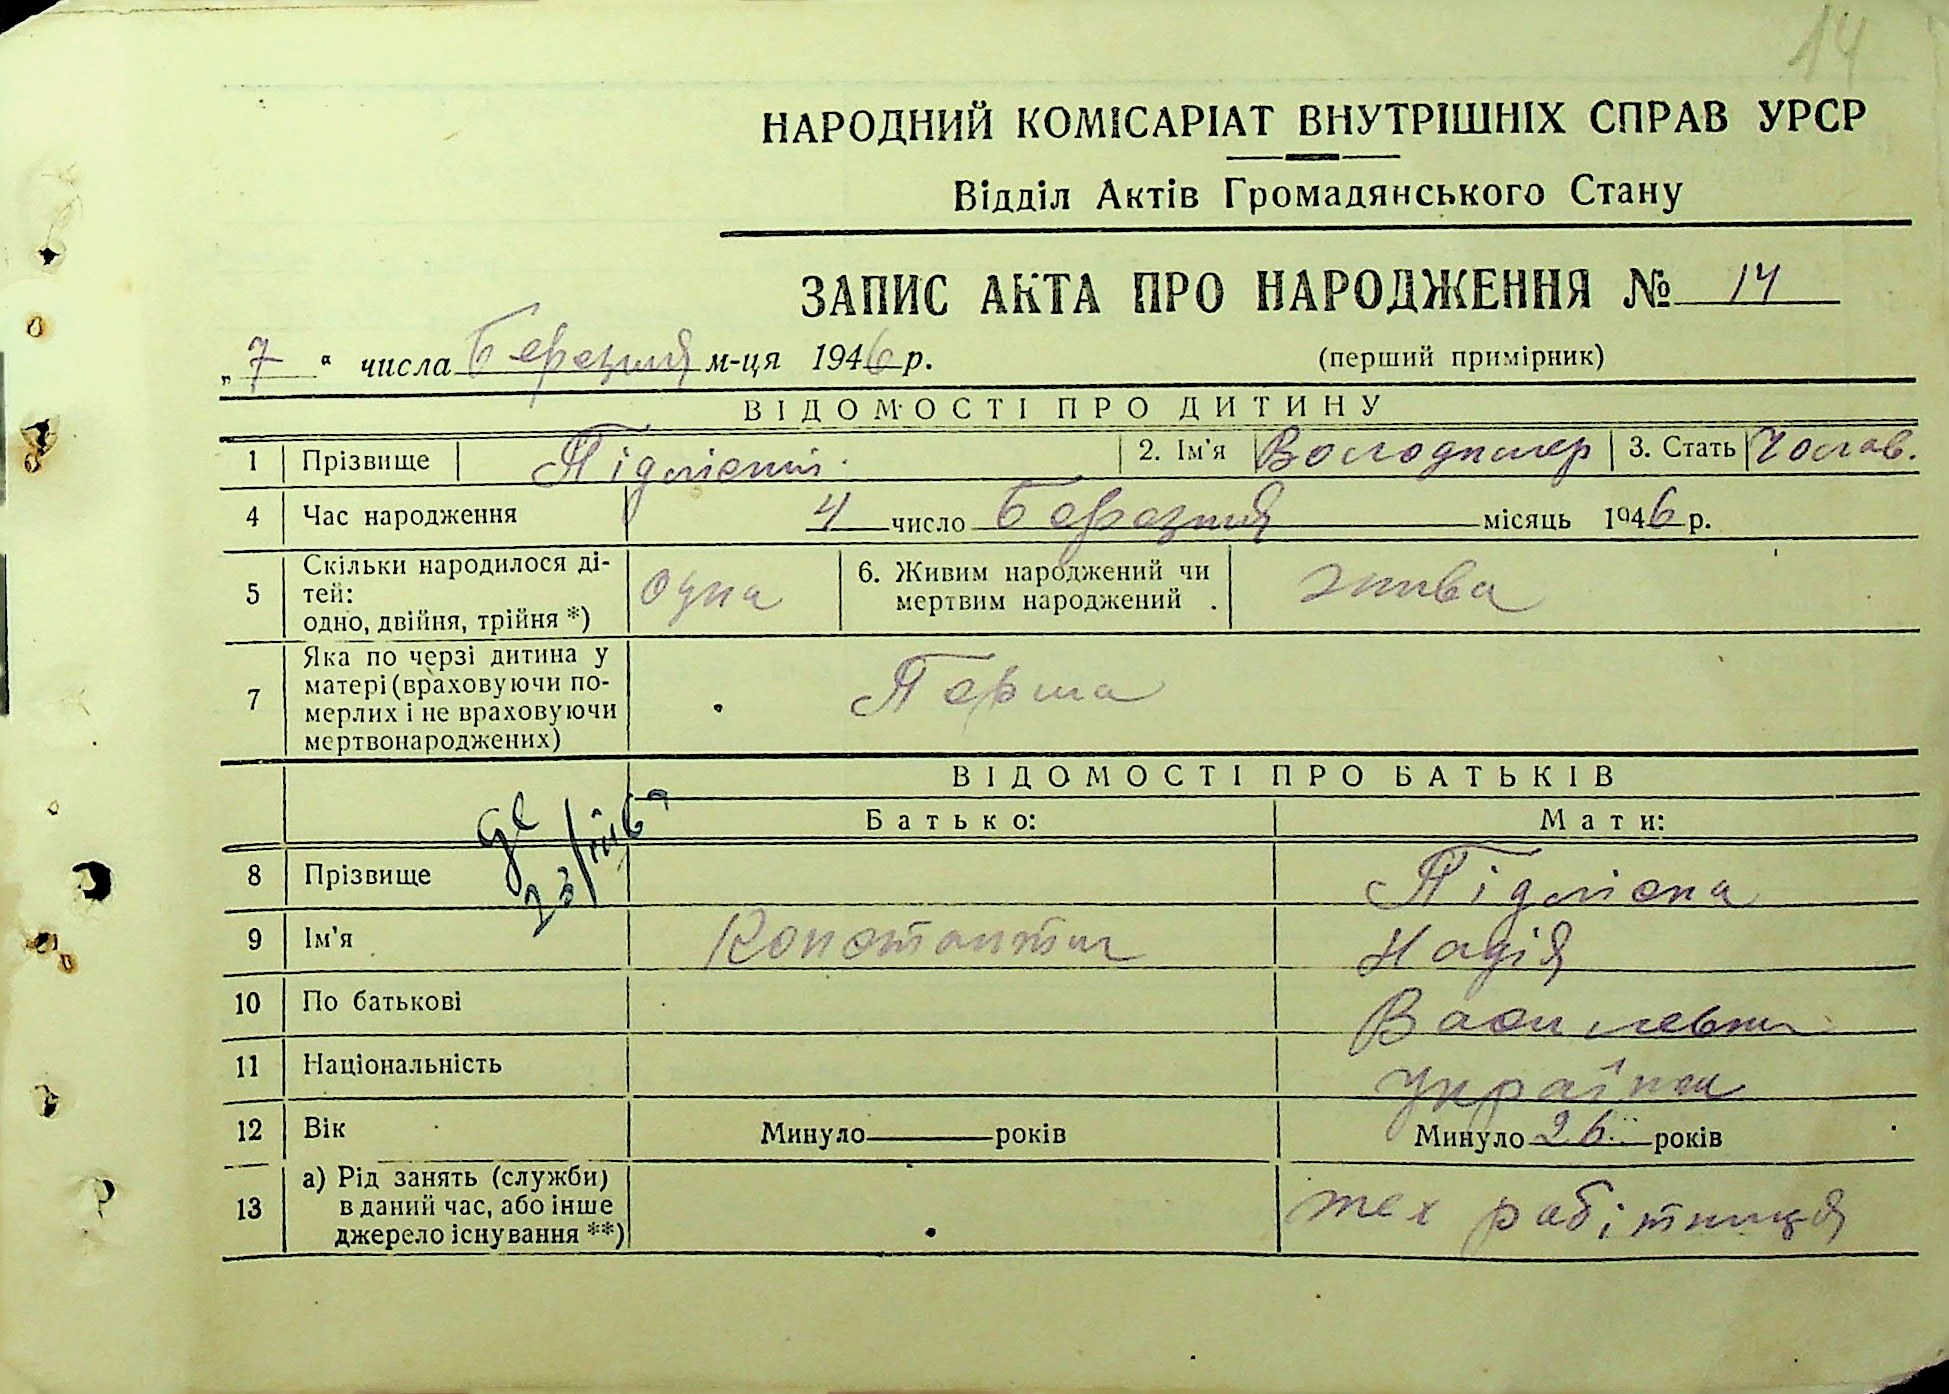 14
НАРОДНИЙ КОМІСАРІАТ ВНУТРІШНІХ СПРАВ УРСР
Відділ Актів Громадянського Стану
ЗАПИС АКТА ПРО НАРОДЖЕННЯ № 14
„ 7 “ числа Березня м-ця 1946 р. (перший примірник)
ВІДОМОСТІ ПРО ДИТИНУ
1 Прізвище 2. Ім'я Володимер 3. Стать Чолов.
4 Час народження 4 число Березня місяць 1946 р.
5 Скільки народилося ді-
тей:
одно, двійня, трійня *) одна 6. Живим народжений чи
мертвим народжений . жива
7 Яка по черзі дитина у
матері (враховуючи по-
мерлих і не враховуючи
мертвонароджених) Перша
ВІДОМОСТІ ПРО БАТЬКІВ
Батько: Мати:
8 Прізвище
9 Ім'я Константин Надія
10 По батькові Василевна
11 Національність Українка
12 Вік Минуло років Минуло 26 років
13 а) Рід занять (служби)
в даний час, або інше
джерело існування **) тех робітниця